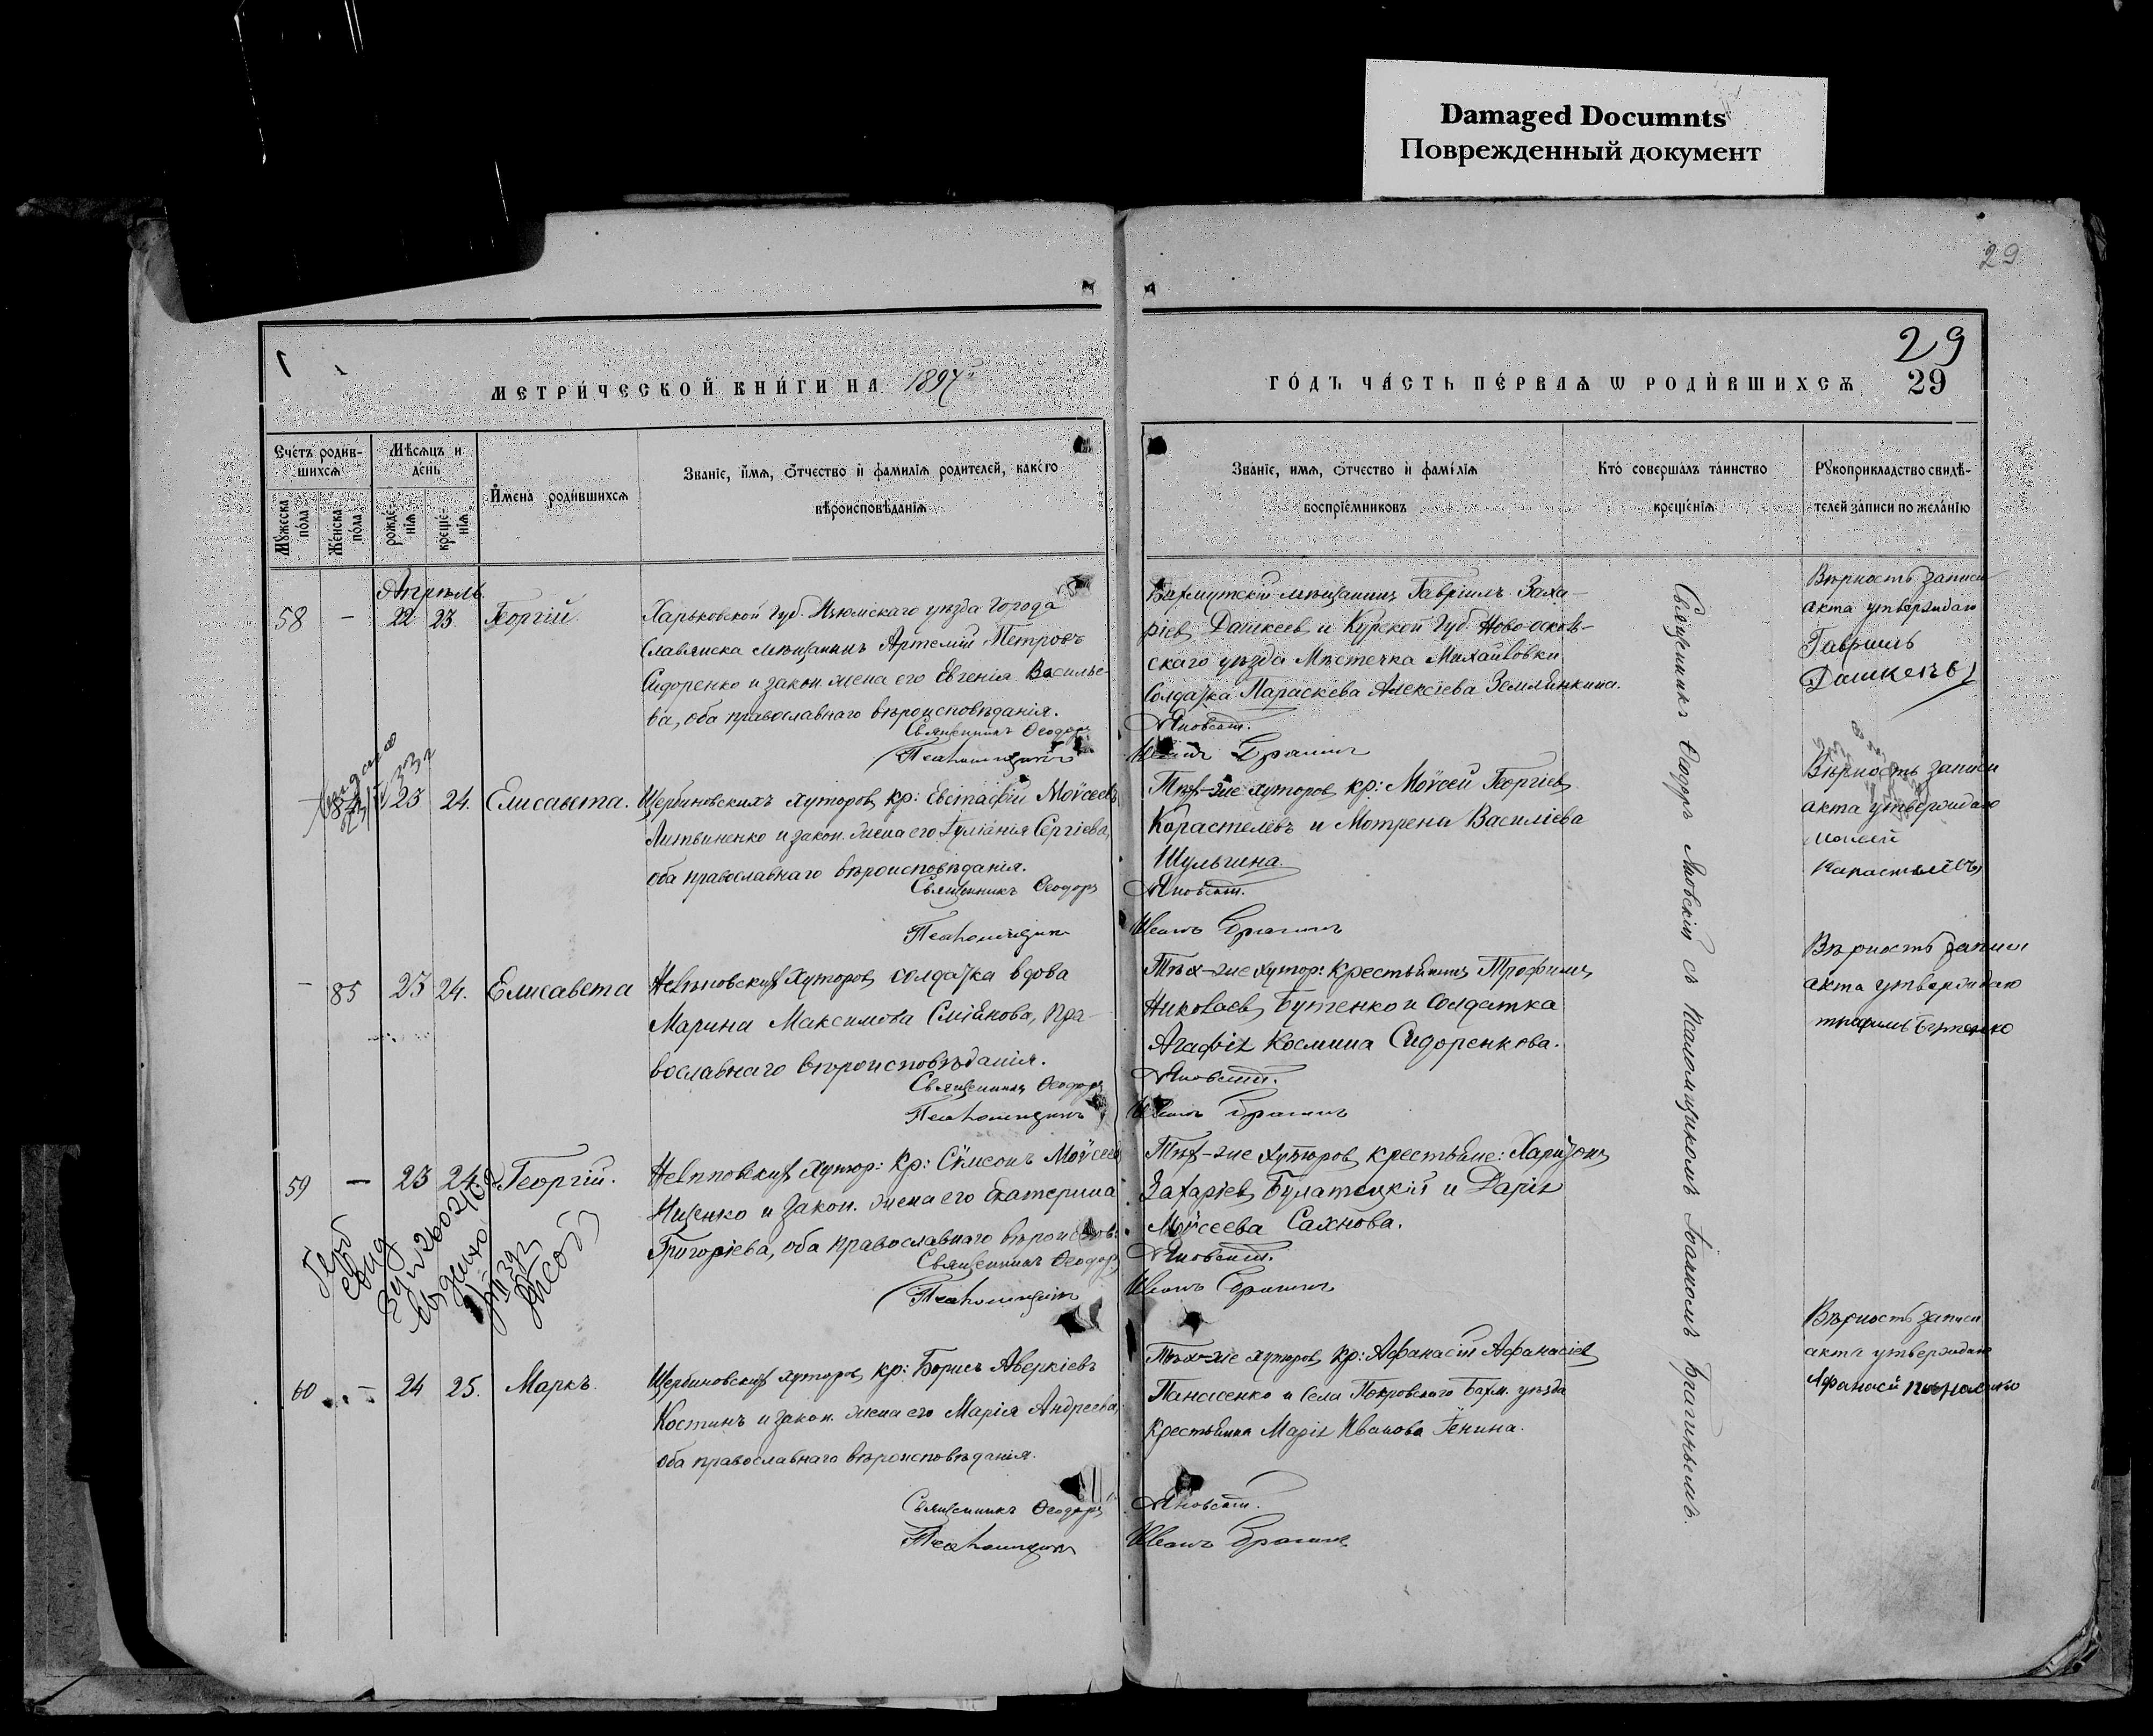 Damaged Documnts
Поврежденный документ
29
29
МЕТРИ́ЧЕСКОЙ КНИ́ГИ НА 1897
ГО́ДЪ ЧА́СТЬ ПЕ́РВАѦ Ѡ РОДИ́ВШИХСѦ 29
Сче́тъ роди́в-
шихсѧ
Мꙋжеска по́ла
Же́нска по́ла
Мѣ́сѧцъ и
де́нь
рожде́-
нїѧ
креще́-
нїѧ
И҆мена̀ роди́вшихсѧ
Зва́нїе, и҆мѧ, ѻ҆́тчество и҆ фами́лїѧ роди́телей, како́го
вѣроисповѣ́данїѧ
Зва́нїе, имѧ, ѻ҆́тчество и҆ фамі́лїѧ
воспрїе́мниковъ
Кто́ соверша́лъ та́инство
креще́нїѧ
Рꙋкоприкла́дство свидѣ́-
телей за́писи по жела́нїю
Апрѣль
58 - 22 23. Георгій.
Харьковской губ. Изюмскаго уѣзда города
Славянска мѣщанинъ Артемій Петровъ
Сидоренко и закон. жена его Евгенія Василье-
ва, оба православнаго вѣроисповѣданія.
Священникъ Ѳеодоръ
Псаломщикъ
Бахмутскій мѣщанинъ Гавріилъ Заха-
ріев Дашкеев и Курской Губ. Ново-осколь-
скаго уѣзда Мѣстечка Михайловки
Солдатка Параскева Алексіева Землянкина.
Яновскій.
Иванъ Брагинъ
Вѣрность записи
акта утверждаю
Гавриилъ
Дашкевъ
- 84 23 24. Елисавета.
Щербиновскихъ хуторов кр: Евстафій Моѵсеевъ
Литвиненко и закон. жена его Іуліанія Сергіева,
оба православнаго вѣроисповѣданія.
Священникъ Ѳеодоръ
Псаломщикъ
Тѣх-же хуторов кр: Моѵсей Георгіев
Карастелевъ и Мотрена Василіева
Шульгина.
Яновскій.
Иванъ Брагинъ
Вѣрность записи
акта утверждаю
Моисей
Карастелевъ
- 85 23 24. Елисавета
Нелѣповских хуторов солдатка вдова
Марина Максимова Сміянова, пра-
вославнаго вѣроисповѣданія.
Священникъ Ѳеодоръ
Псаломщикъ
Тѣх-же хутор: крестьянинъ Трофимъ
Николаев Бутенко и Солдатка
Агафія Космина Сидоренкова.
Яновскій.
Иванъ Брагинъ
Вѣрность записи
акта утверждаю
трофимъ Бутенко
59 - 23 24. Георгій.
Нелѣповских хутор: кр: Сѵмеонъ Моѵсеев
Ищенко и закон. жена его Екатерина
Григоріева, оба православнаго вѣроисповѣ.
Священникъ Ѳеодоръ
Псаломщикъ
Тѣх-же хуторов крестьяне: Харитонъ
Захаріев Булатецкій и Дарія
Моѵсеева Сахнова.
Яновскій.
Иванъ Брагинъ
60 - 24 25. Маркъ.
Щербиновских хуторов кр: Борисъ Аверкіевъ
Костинъ и закон. жена его Марія Андреева,
оба православнаго вѣроисповѣданія.
Священникъ Ѳеодоръ
Псаломщикъ
Тѣх-же хуторов кр: Афанасій Афанасіев
Панасенко и села Покровскаго Бахм. уѣзда
крестьянка Марія Иванова Генина.
Яновскій.
Иванъ Брагинъ
Вѣрность записи
акта утверждаю
Афанасій Панасенко
Священникъ Ѳеодоръ Яновскій съ Псаломщикомъ Іоанномъ Брагинымъ.